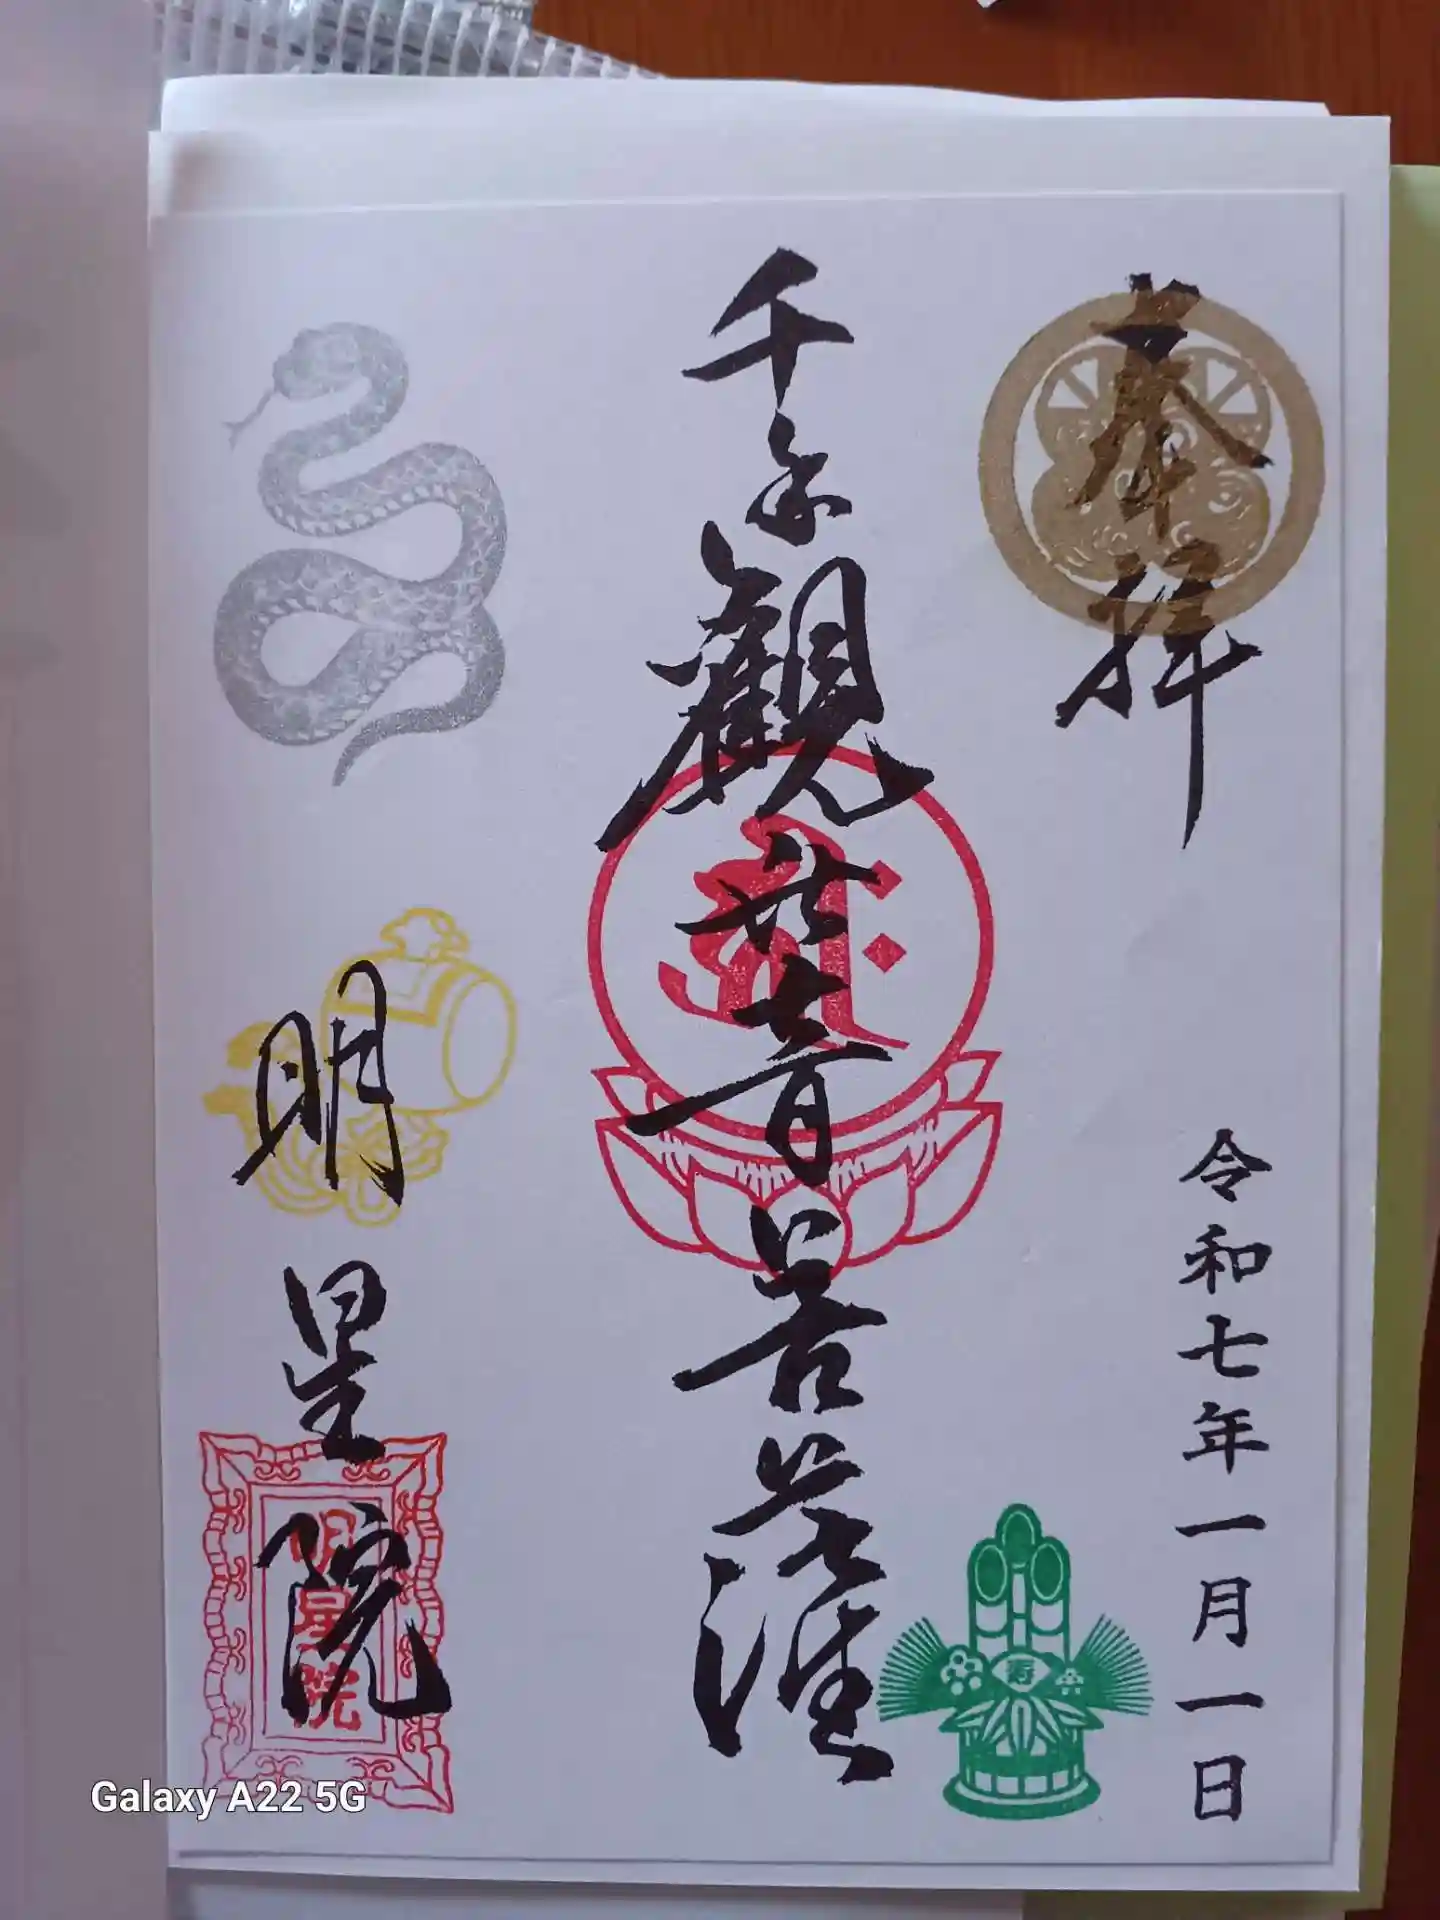 奉拝
令和七年一月一日
千手觀世音菩薩
明星院
明星院
寿
Galaxy A22 5G